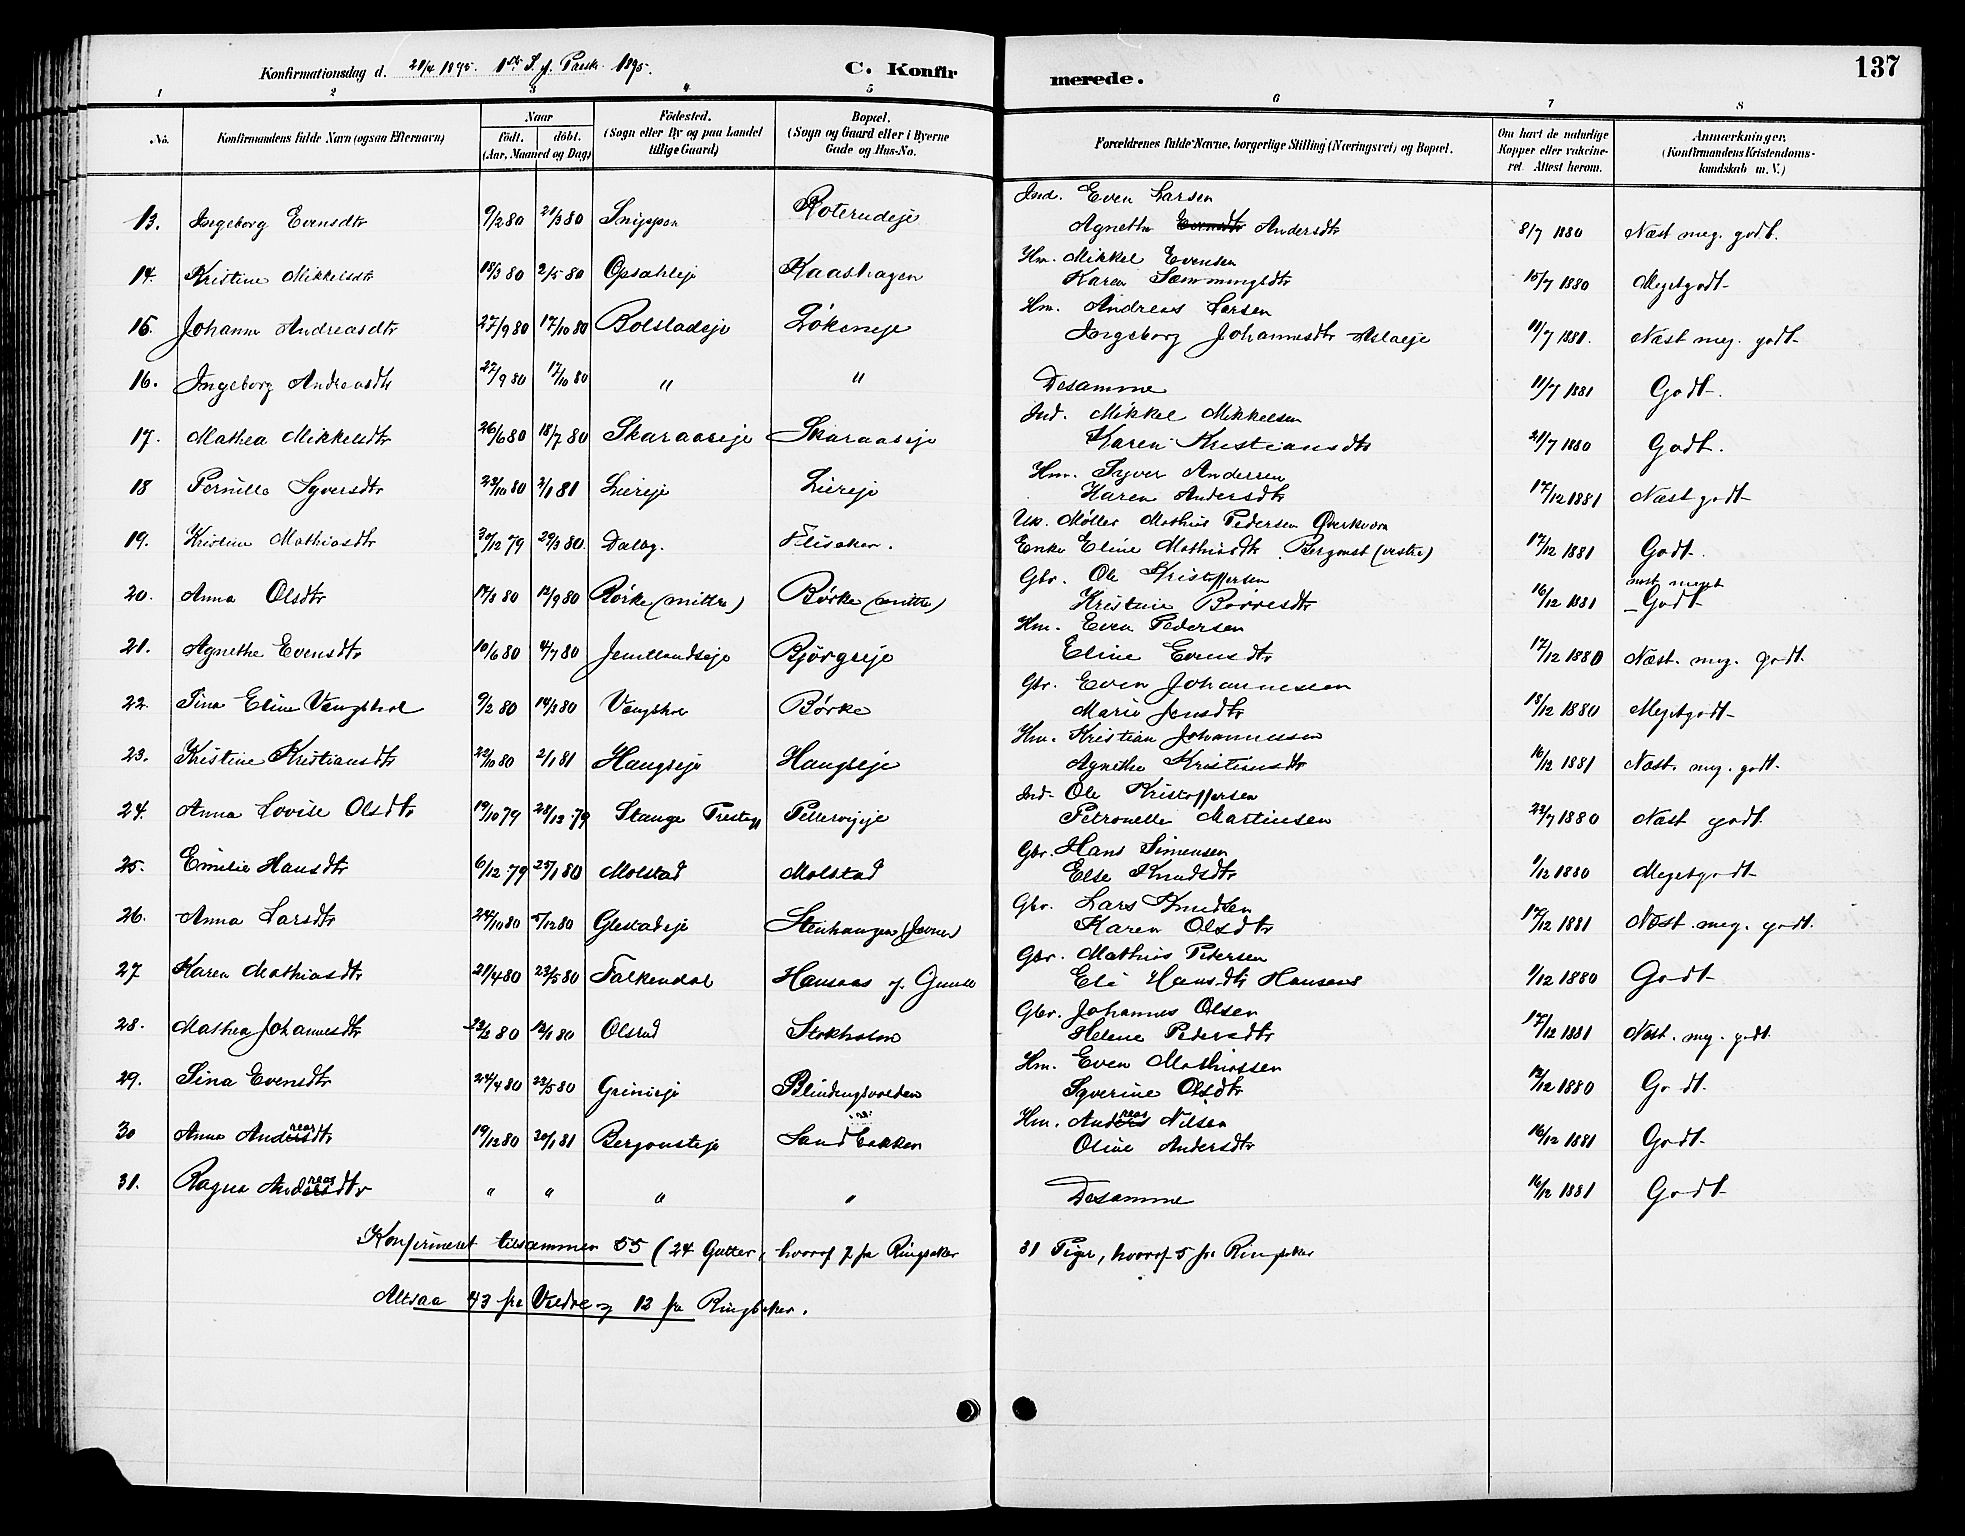 Konfirmationsdag d. 21/4 1895. 1ste S. e. Paask. 1895.
C. Konfirmerede.
137
1 2 3 4 5 6 7 8
No.
Konfirmandens fulde Navn (ogsaa Efternavn)
Naar
födt. döbt.
(Aar, Maaned og Dag)
Födested.
(Sogn eller By og paa Landet
tillige Gaard)
Bopæl.
(Sogn og Gaard eller i Byerne
Gade og Hus-No.
Forældrenes fulde Navne, borgerlige Stilling (Næringsvei) og Bopæl.
Om havt de naturlige
Kopper eller vakcine-
ret. Attest herom.
Anmærkninger,
(Konfirmandens Kristendoms-
kundskab m. V.)
13. Ingeborg Evensdtr 9/2 80 21/3 80 Snippen Roterudeje Ind. Even Larsen
Agnethe Evensdtr Andersdtr 8/7 1880 Næst meg. godt.
14. Kristine Mikkelsdtr 18/3 80 2/5 80 Opsahleje Kaashagen Hm. Mikkel Evensen
Karen Sæmmingsdtr 15/7 1880 Megetgodt
15. Johanne Andreasdtr 27/9 80 17/10 80 Bolstadeje Lökeneje Hm. Andreas Larsen
Ingeborg Johannesdtr Aslaeje 11/7 1881. Næst meg. godt
16. Ingeborg Andreasdtr 27/9 80 17/10 80 " " Desamme 11/7 1881 Godt.
17. Mathea Mikkelsdtr 26/6 80 18/7 80 Skaraaseje Skaraaseje Ind. Mikkel Mikkelsen
Karen Kristiansdtr 21/7 1880 Godt.
18 Pernille Syversdtr 23/10 80 2/1 81 Liereje Liereje Hm. Syver Andersen
Karen Andersdtr 17/12 1881 Næstgodt
19. Kristine Mathiasdtr 30/12 79 29/3 80. Dalby. Flisaker. Uk. Møller Mathias Pedersen Qverkværn
Enke Eline Mathisdtr Bergonst (vestre) 17/12 1881 Godt.
20. Anna Olsdtr 14/8 80 12/9 80 Börke (mittre) Börke (mittre) Gbr. Ole Kristoffersen
Kristine Börresdtr 16/12 1881 næst meget Godt
21. Agnethe Evensdtr 10/6 80 4/7 80 Jemtlandseje Bjørgeje Hm. Even Pedersen
Eline Evensdtr 17/12 1880 Næst. meg. godt.
22. Tina Eline Vangshol 9/2 80 14/3 80 Vangshol Börke Gbr. Even Johannessen
Marie Jensdtr 13/12 1880 Megetgodt
23. Kristine Kristiansdtr 22/10 80 2/1 81 Haugseje Haugseje Hm. Kristian Johannessen
Agnethe Kristiansdtr 16/12 1881 Næst. meg. godt.
24. Anna Lovise Olsdtr 19/10 79 28/12 79 Stange Prestegj Pellervijeje Ind. Ole Kristoffersen
Petronelle Martinsen 23/7 1880 Næst godt.
25. Emilie Hansdtr 6/12 79 25/1 80 Molstad Molstad Gbr. Hans Simensen
Else Knudsdtr 1/12 1880 Megetgodt
26. Anna Larsdtr 24/10 80 5/12 80 Glestadeje Stenhaugen (Jevne) Gbr. Lars Knudsen
Karen Olsdtr 17/12 1881 Næst. meg. godt.
27 Karen Mathiasdtr 21/4 80 23/5 80 Falkendal Hansaas Gbr. Mathias Pedersen
Eli Hansdtr Hansaas 1/12 1880 Godt
28. Mathea Johannesdtr 22/2 80 Olsrud Stokholm Gbr. Johannes Olsen
Helene Pedersdtr 17/12 1881 Næst. meg. godt.
29. Tina Evensdtr 24/4 80 23/5 80 Grinieje Blindingsvolden Hm. Even Mathiassen
Syverine Olsdtr 13/12 1880 Godt.
30 Anna Andreasdtr 19/12 80 20/1 81 Bergonsteje Sandbakken Hm. Andreas Nilsen
Oline Andersdtr 16/12 1881 Godt
31. Ragna Andreasdtr " " " " Desamme 16/12 1881 Godt
Konfirmeret tilsammen 55 (24 Gutter, hvoraf 7 fra Ringsaker 31 Piger, hvoraf 5 fra Ringsaker
Altsaa 43 fra Veldre og 12 fra Ringsaker.